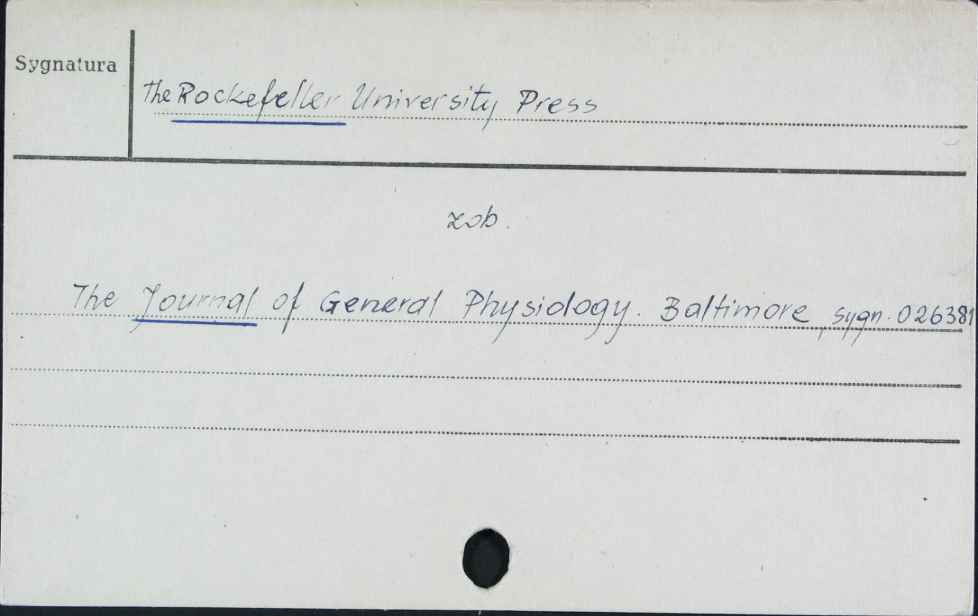 Sygnatura
The Rockefeller University Press
zob.
The Journal of General Physiology. Baltimore, sygn. 026381